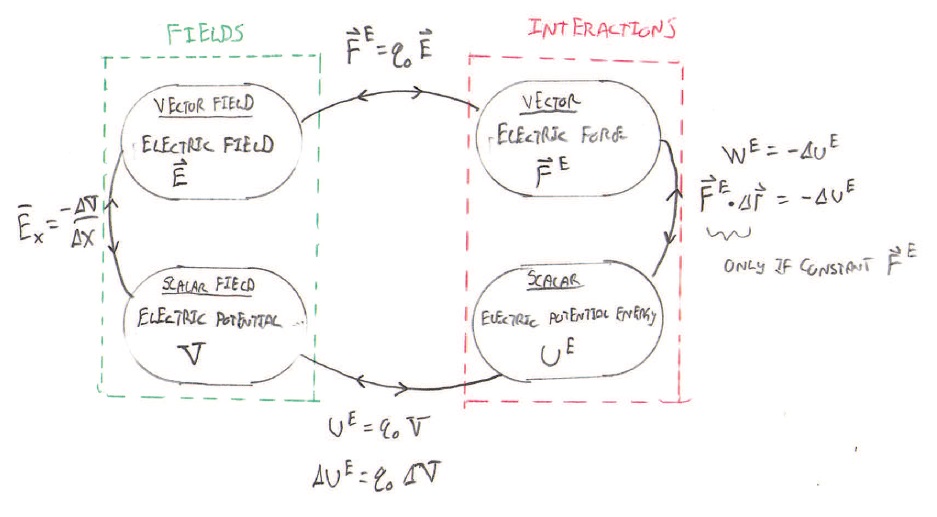 FIELDS
INTERACTIONS
F⃗ᴱ = q₀ E⃗
VECTOR FIELD
ELECTRIC FIELD
E⃗
VECTOR
ELECTRIC FORCE
F⃗ᴱ
Wᴱ = -ΔUᴱ
F⃗ᴱ · Δr⃗ = -ΔUᴱ
ONLY IF CONSTANT F⃗ᴱ
E̅ₓ = -ΔV/ΔX
SCALAR FIELD
ELECTRIC POTENTIAL
V
SCALAR
ELECTRIC POTENTIAL ENERGY
Uᴱ
Uᴱ = q₀ V
ΔUᴱ = q₀ ΔV